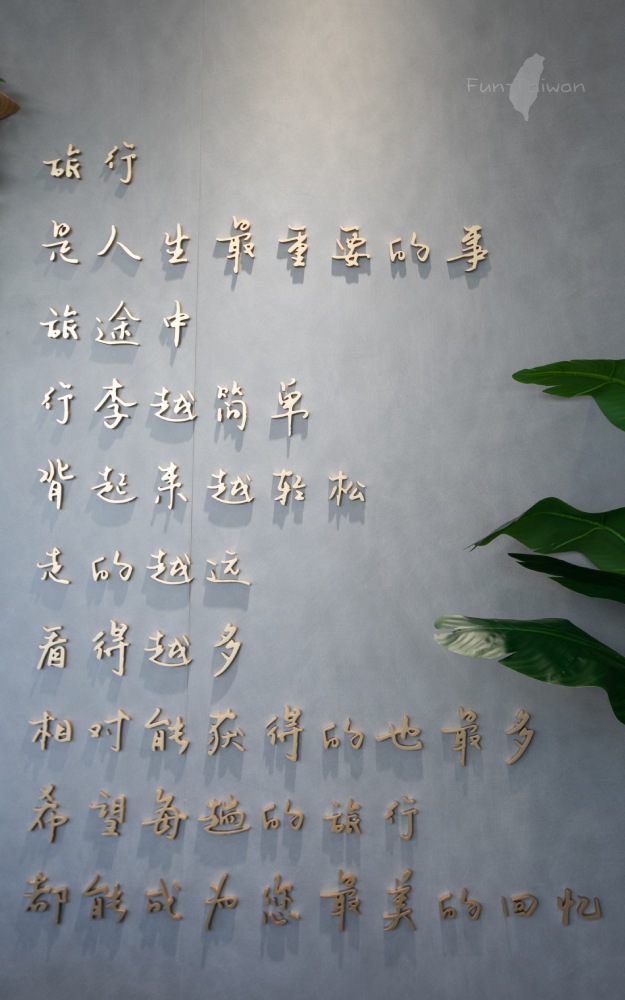 Fun-Taiwan
旅行
是人生最重要的事
旅途中
行李越简单
背起来越轻松
走的越远
看得越多
相对能获得的也最多
希望每趟的旅行
都能成为您最美的回忆